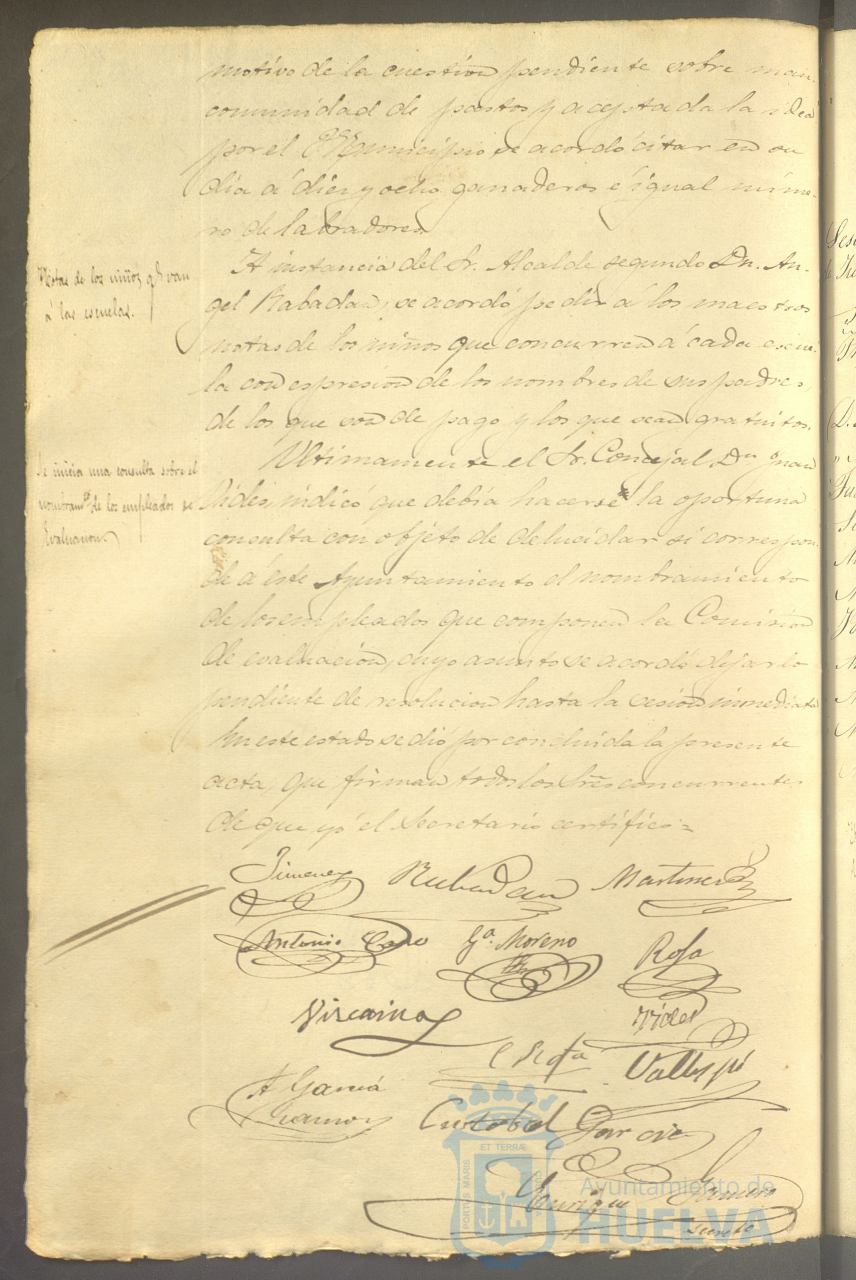 motivo de la cuestion pendiente sobre man-
comunidad de pastos y aceptada la idea
por el Municipio se acordó citar en su
dia á diez y ocho ganaderos é igual núme-
ro de labradores.
Notas de los niños q.e van
á las escuelas.
A instancia del Sr. Alcalde segundo Dn. An-
gel Rabadan, se acordó pedir á los maestros
notas de los niños que concurren á cada escue-
la con espresion de los nombres de sus padres,
de los que son de pago y los que sean gratuitos.
Se inicia una consulta sobre el
nombram.to de los empleados de
Evaluacion.
Ultimamente el Sr. Concejal Dn Juan
indicó que debia hacerse la oportuna
consulta con objeto de delucidar si correspon-
de á este Ayuntamiento el nombramiento
de los empleados que componen la Comision
de evaluacion, cuyo asunto se acordó dejarlo
pendiente de resolucion hasta la sesion inmediata
En este estado se dió por concluida la presente
acta, que firman todos los Sres concurrentes
de que yo el Secretario certifico=
Jimenez Rabadan Martinez
Antonio Cano Ga. Moreno Rosa
Vizcaino
C Rosa Vallejo
A Garcia
Ramos Cristobal Garcia
Enrique Romero
Secreto
ET TERRÆ
PORTUS MARIS
CUSTODIA
Ayuntamiento de
HUELVA